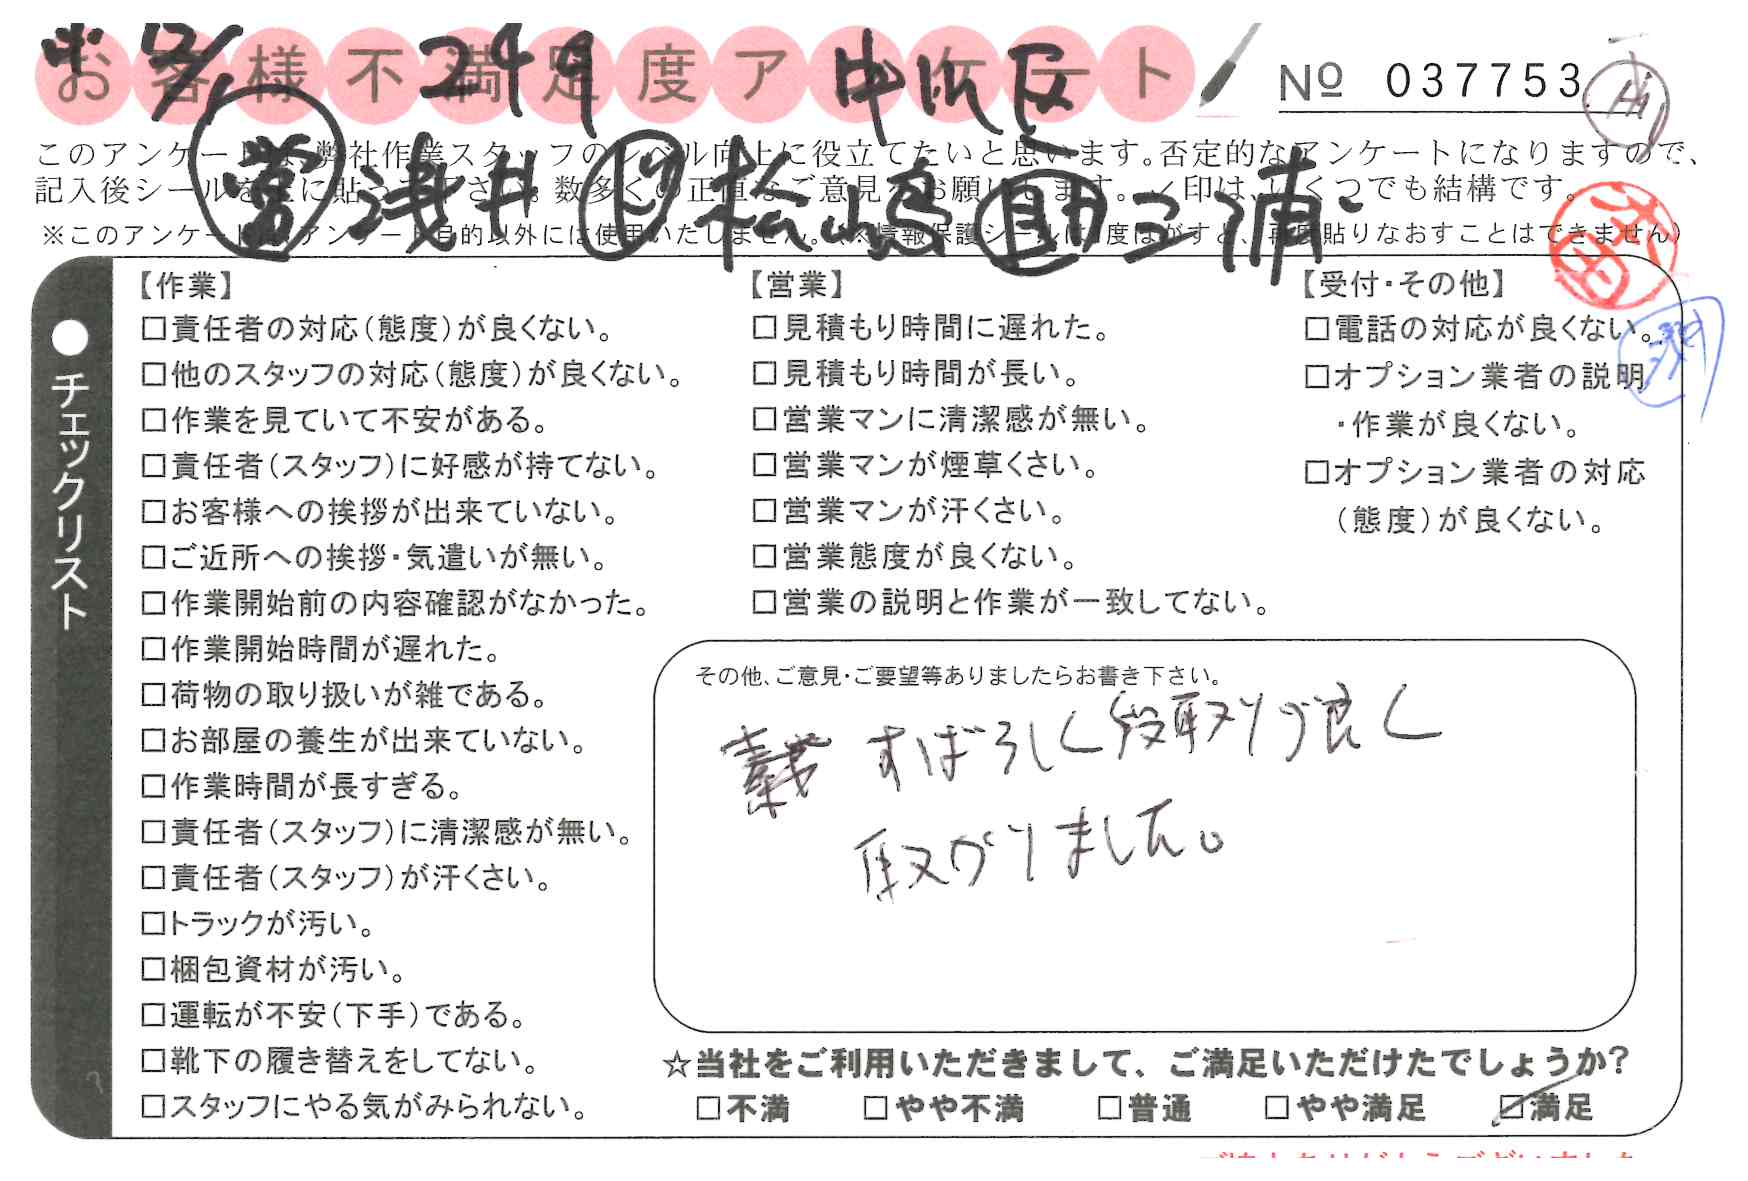 お客様不満足度アンケート
12/1 249 中川区
№ 037753
このアンケートは、弊社作業スタッフのレベル向上に役立てたいと思います。否定的なアンケートになりますので、
記入後シールを上に貼って下さい。数多くの正直なご意見をお願いします。✓印は、いくつでも結構です。
営 浅井 ド 松嶋 助 三浦
※このアンケートは、アンケート目的以外には使用いたしません。(※情報保護シールは1度はがすと、再度貼りなおすことはできません)
●チェックリスト
【作業】
□責任者の対応(態度)が良くない。
□他のスタッフの対応(態度)が良くない。
□作業を見ていて不安がある。
□責任者(スタッフ)に好感が持てない。
□お客様への挨拶が出来ていない。
□ご近所への挨拶・気遣いが無い。
□作業開始前の内容確認がなかった。
□作業開始時間が遅れた。
□荷物の取り扱いが雑である。
□お部屋の養生が出来ていない。
□作業時間が長すぎる。
□責任者(スタッフ)に清潔感が無い。
□責任者(スタッフ)が汗くさい。
□トラックが汚い。
□梱包資材が汚い。
□運転が不安(下手)である。
□靴下の履き替えをしてない。
□スタッフにやる気がみられない。
【営業】
□見積もり時間に遅れた。
□見積もり時間が長い。
□営業マンに清潔感が無い。
□営業マンが煙草くさい。
□営業マンが汗くさい。
□営業態度が良くない。
□営業の説明と作業が一致してない。
【受付・その他】
□電話の対応が良くない。
□オプション業者の説明
・作業が良くない。
□オプション業者の対応
(態度)が良くない。
その他、ご意見・ご要望等ありましたらお書き下さい。
すばらしく段取りが良く
取がりました。
☆当社をご利用いただきまして、ご満足いただけたでしょうか?
□不満 □やや不満 □普通 □やや満足 ☑満足